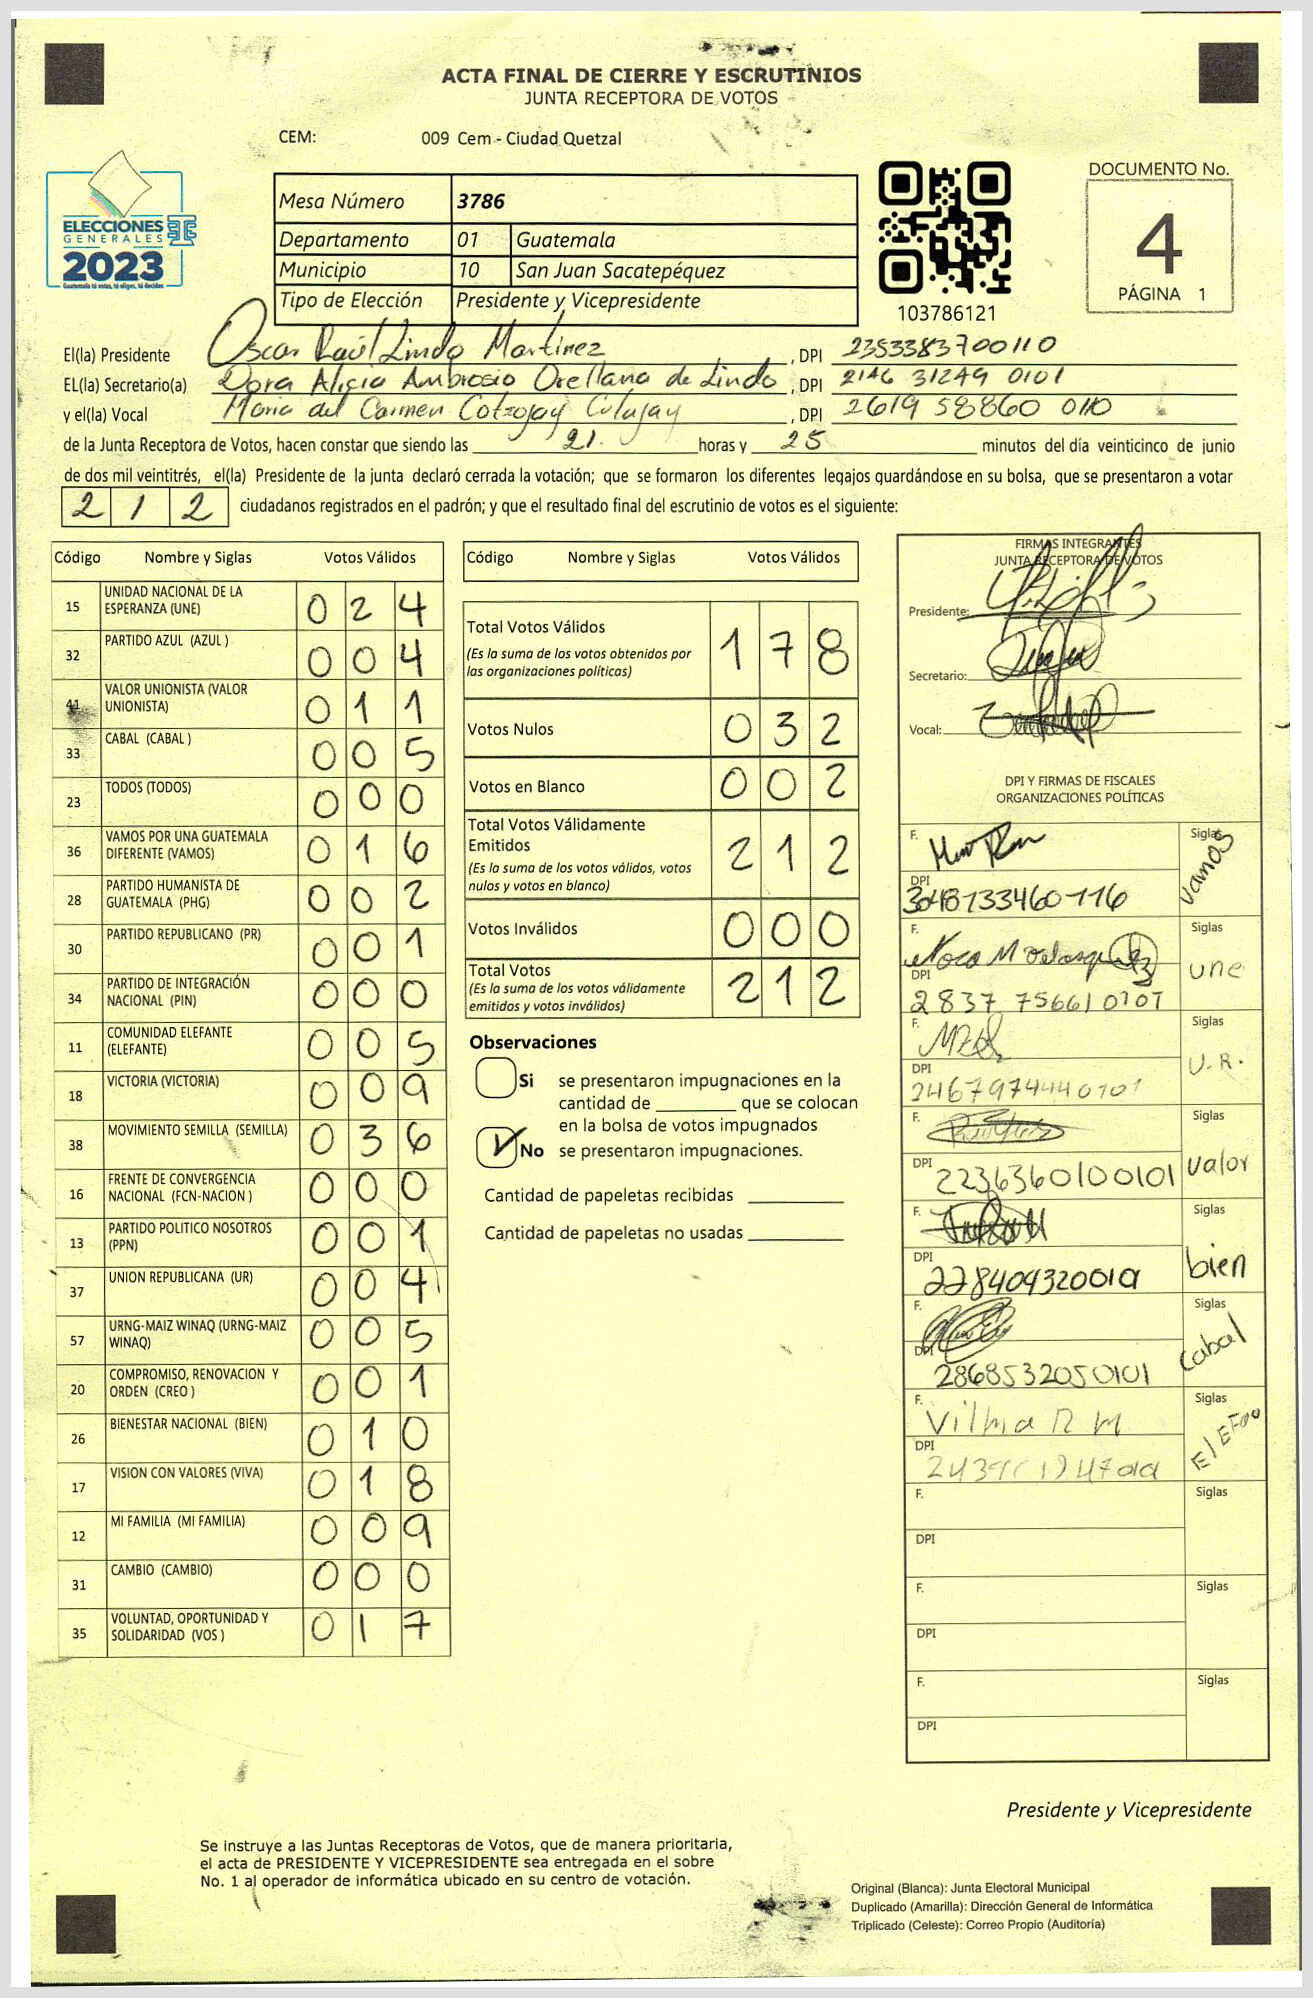 ACTA FINAL DE CIERRE Y ESCRUTINIOS
JUNTA RECEPTORA DE VOTOS
CEM: 009 Cem - Ciudad Quetzal
ELECCIONES
GENERALES
2023
Guatemala tú votas, tú eliges, tú decides
Mesa Número 3786
Departamento 01 Guatemala
Municipio 10 San Juan Sacatepéquez
Tipo de Elección Presidente y Vicepresidente
103786121
DOCUMENTO No.
4
PÁGINA 1
El(la) Presidente Oscar Raúl Lindo Martínez, DPI 2353383700110
EL(la) Secretario(a) Dora Alicia Ambrosio Orellana de Lindo, DPI 2146 31249 0101
y el(la) Vocal Maria del Carmen Cotzojay Culajay, DPI 2619 58860 0110
de la Junta Receptora de Votos, hacen constar que siendo las 21. horas y 25 minutos del día veinticinco de junio
de dos mil veintitrés, el(la) Presidente de la junta declaró cerrada la votación; que se formaron los diferentes legajos guardándose en su bolsa, que se presentaron a votar
2 1 2 ciudadanos registrados en el padrón; y que el resultado final del escrutinio de votos es el siguiente:
Código Nombre y Siglas Votos Válidos
15 UNIDAD NACIONAL DE LA ESPERANZA (UNE) 0 2 4
32 PARTIDO AZUL (AZUL ) 0 0 4
41 VALOR UNIONISTA (VALOR UNIONISTA) 0 1 1
33 CABAL (CABAL ) 0 0 5
23 TODOS (TODOS) 0 0 0
36 VAMOS POR UNA GUATEMALA DIFERENTE (VAMOS) 0 1 6
28 PARTIDO HUMANISTA DE GUATEMALA (PHG) 0 0 2
30 PARTIDO REPUBLICANO (PR) 0 0 1
34 PARTIDO DE INTEGRACIÓN NACIONAL (PIN) 0 0 0
11 COMUNIDAD ELEFANTE (ELEFANTE) 0 0 5
18 VICTORIA (VICTORIA) 0 0 9
38 MOVIMIENTO SEMILLA (SEMILLA) 0 3 6
16 FRENTE DE CONVERGENCIA NACIONAL (FCN-NACION ) 0 0 0
13 PARTIDO POLITICO NOSOTROS (PPN) 0 0 1
37 UNION REPUBLICANA (UR) 0 0 4
57 URNG-MAIZ WINAQ (URNG-MAIZ WINAQ) 0 0 5
20 COMPROMISO, RENOVACION Y ORDEN (CREO ) 0 0 1
26 BIENESTAR NACIONAL (BIEN) 0 1 0
17 VISION CON VALORES (VIVA) 0 1 8
12 MI FAMILIA (MI FAMILIA) 0 0 9
31 CAMBIO (CAMBIO) 0 0 0
35 VOLUNTAD, OPORTUNIDAD Y SOLIDARIDAD (VOS ) 0 1 7
Código Nombre y Siglas Votos Válidos
Total Votos Válidos 1 7 8
(Es la suma de los votos obtenidos por
las organizaciones políticas)
Votos Nulos 0 3 2
Votos en Blanco 0 0 2
Total Votos Válidamente
Emitidos 2 1 2
(Es la suma de los votos válidos, votos
nulos y votos en blanco)
Votos Inválidos 0 0 0
Total Votos 2 1 2
(Es la suma de los votos válidamente
emitidos y votos inválidos)
Observaciones
Si se presentaron impugnaciones en la
cantidad de ________ que se colocan
en la bolsa de votos impugnados
No se presentaron impugnaciones.
Cantidad de papeletas recibidas
Cantidad de papeletas no usadas
FIRMAS INTEGRANTES
JUNTA RECEPTORA DE VOTOS
Presidente:
Secretario:
Vocal:
DPI Y FIRMAS DE FISCALES
ORGANIZACIONES POLÍTICAS
F. Siglas vamos
DPI
F. Siglas une
DPI 2837 75661 0101
F. Siglas U.R.
DPI 2467974440101
F. Siglas valor
DPI 2236360100101
F. Siglas bien
DPI
F. Siglas Cabal
DPI 2868532050101
F. Vilma R M Siglas
DPI
F. Siglas
DPI
F. Siglas
DPI
F. Siglas
DPI
Presidente y Vicepresidente
Se instruye a las Juntas Receptoras de Votos, que de manera prioritaria,
el acta de PRESIDENTE Y VICEPRESIDENTE sea entregada en el sobre
No. 1 al operador de informática ubicado en su centro de votación.
Original (Blanca): Junta Electoral Municipal
Duplicado (Amarilla): Dirección General de Informática
Triplicado (Celeste): Correo Propio (Auditoría)